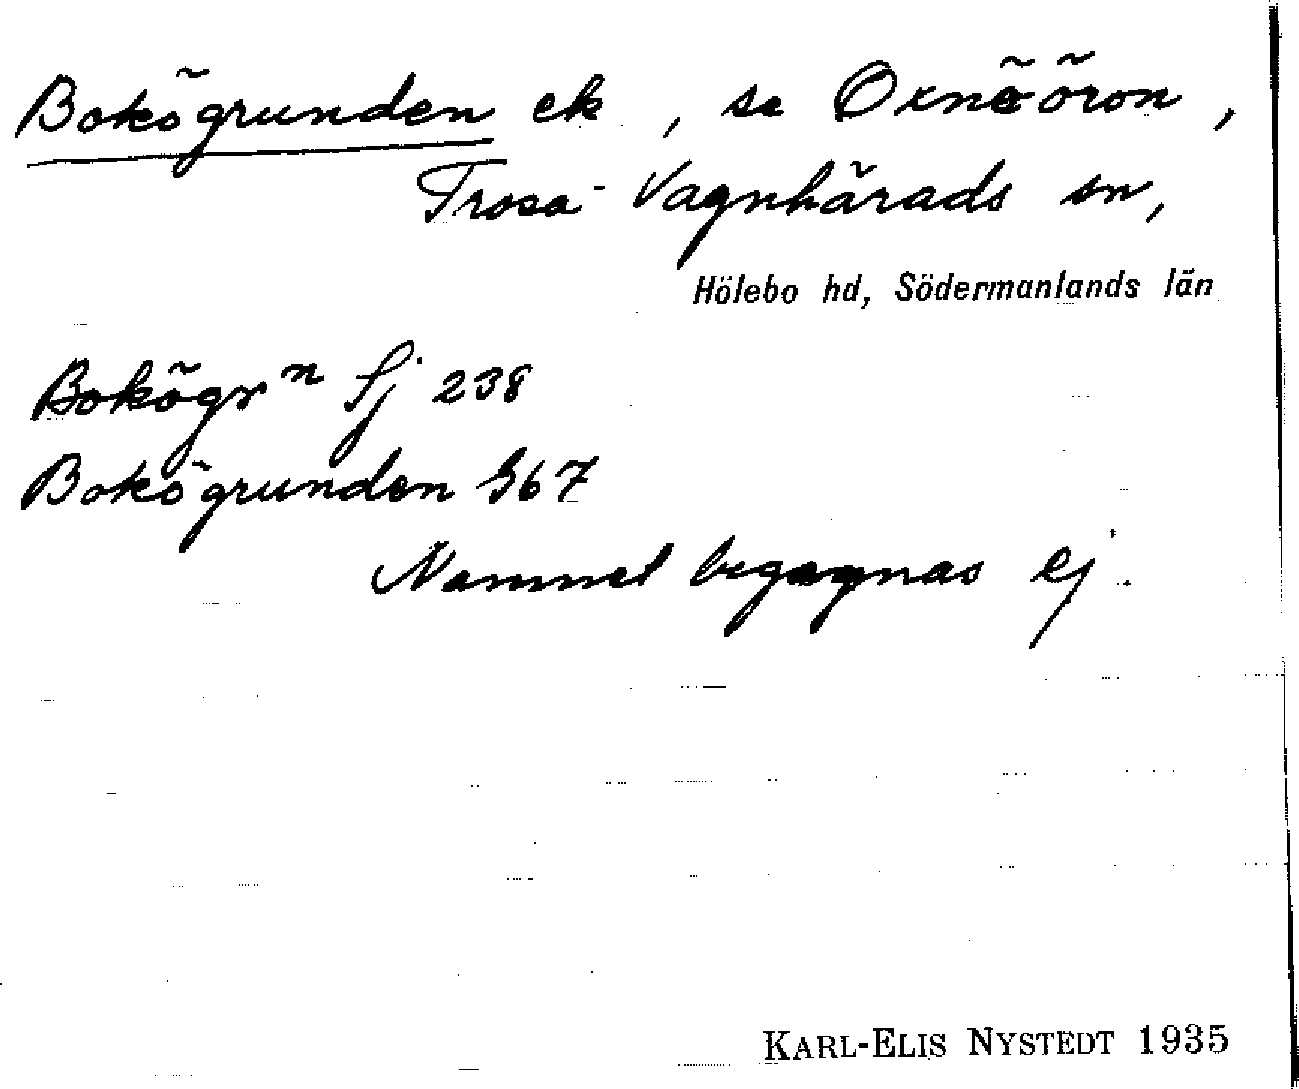 Bokögrunden ek, se Oxnöören,
Trosa-Vagnhärads sn,
Hölebo hd, Södermanlands län
Bokögrn Sj 238
Bokögrunden S67
Namnet begagnas ej.
KARL-ELIS NYSTEDT 1935